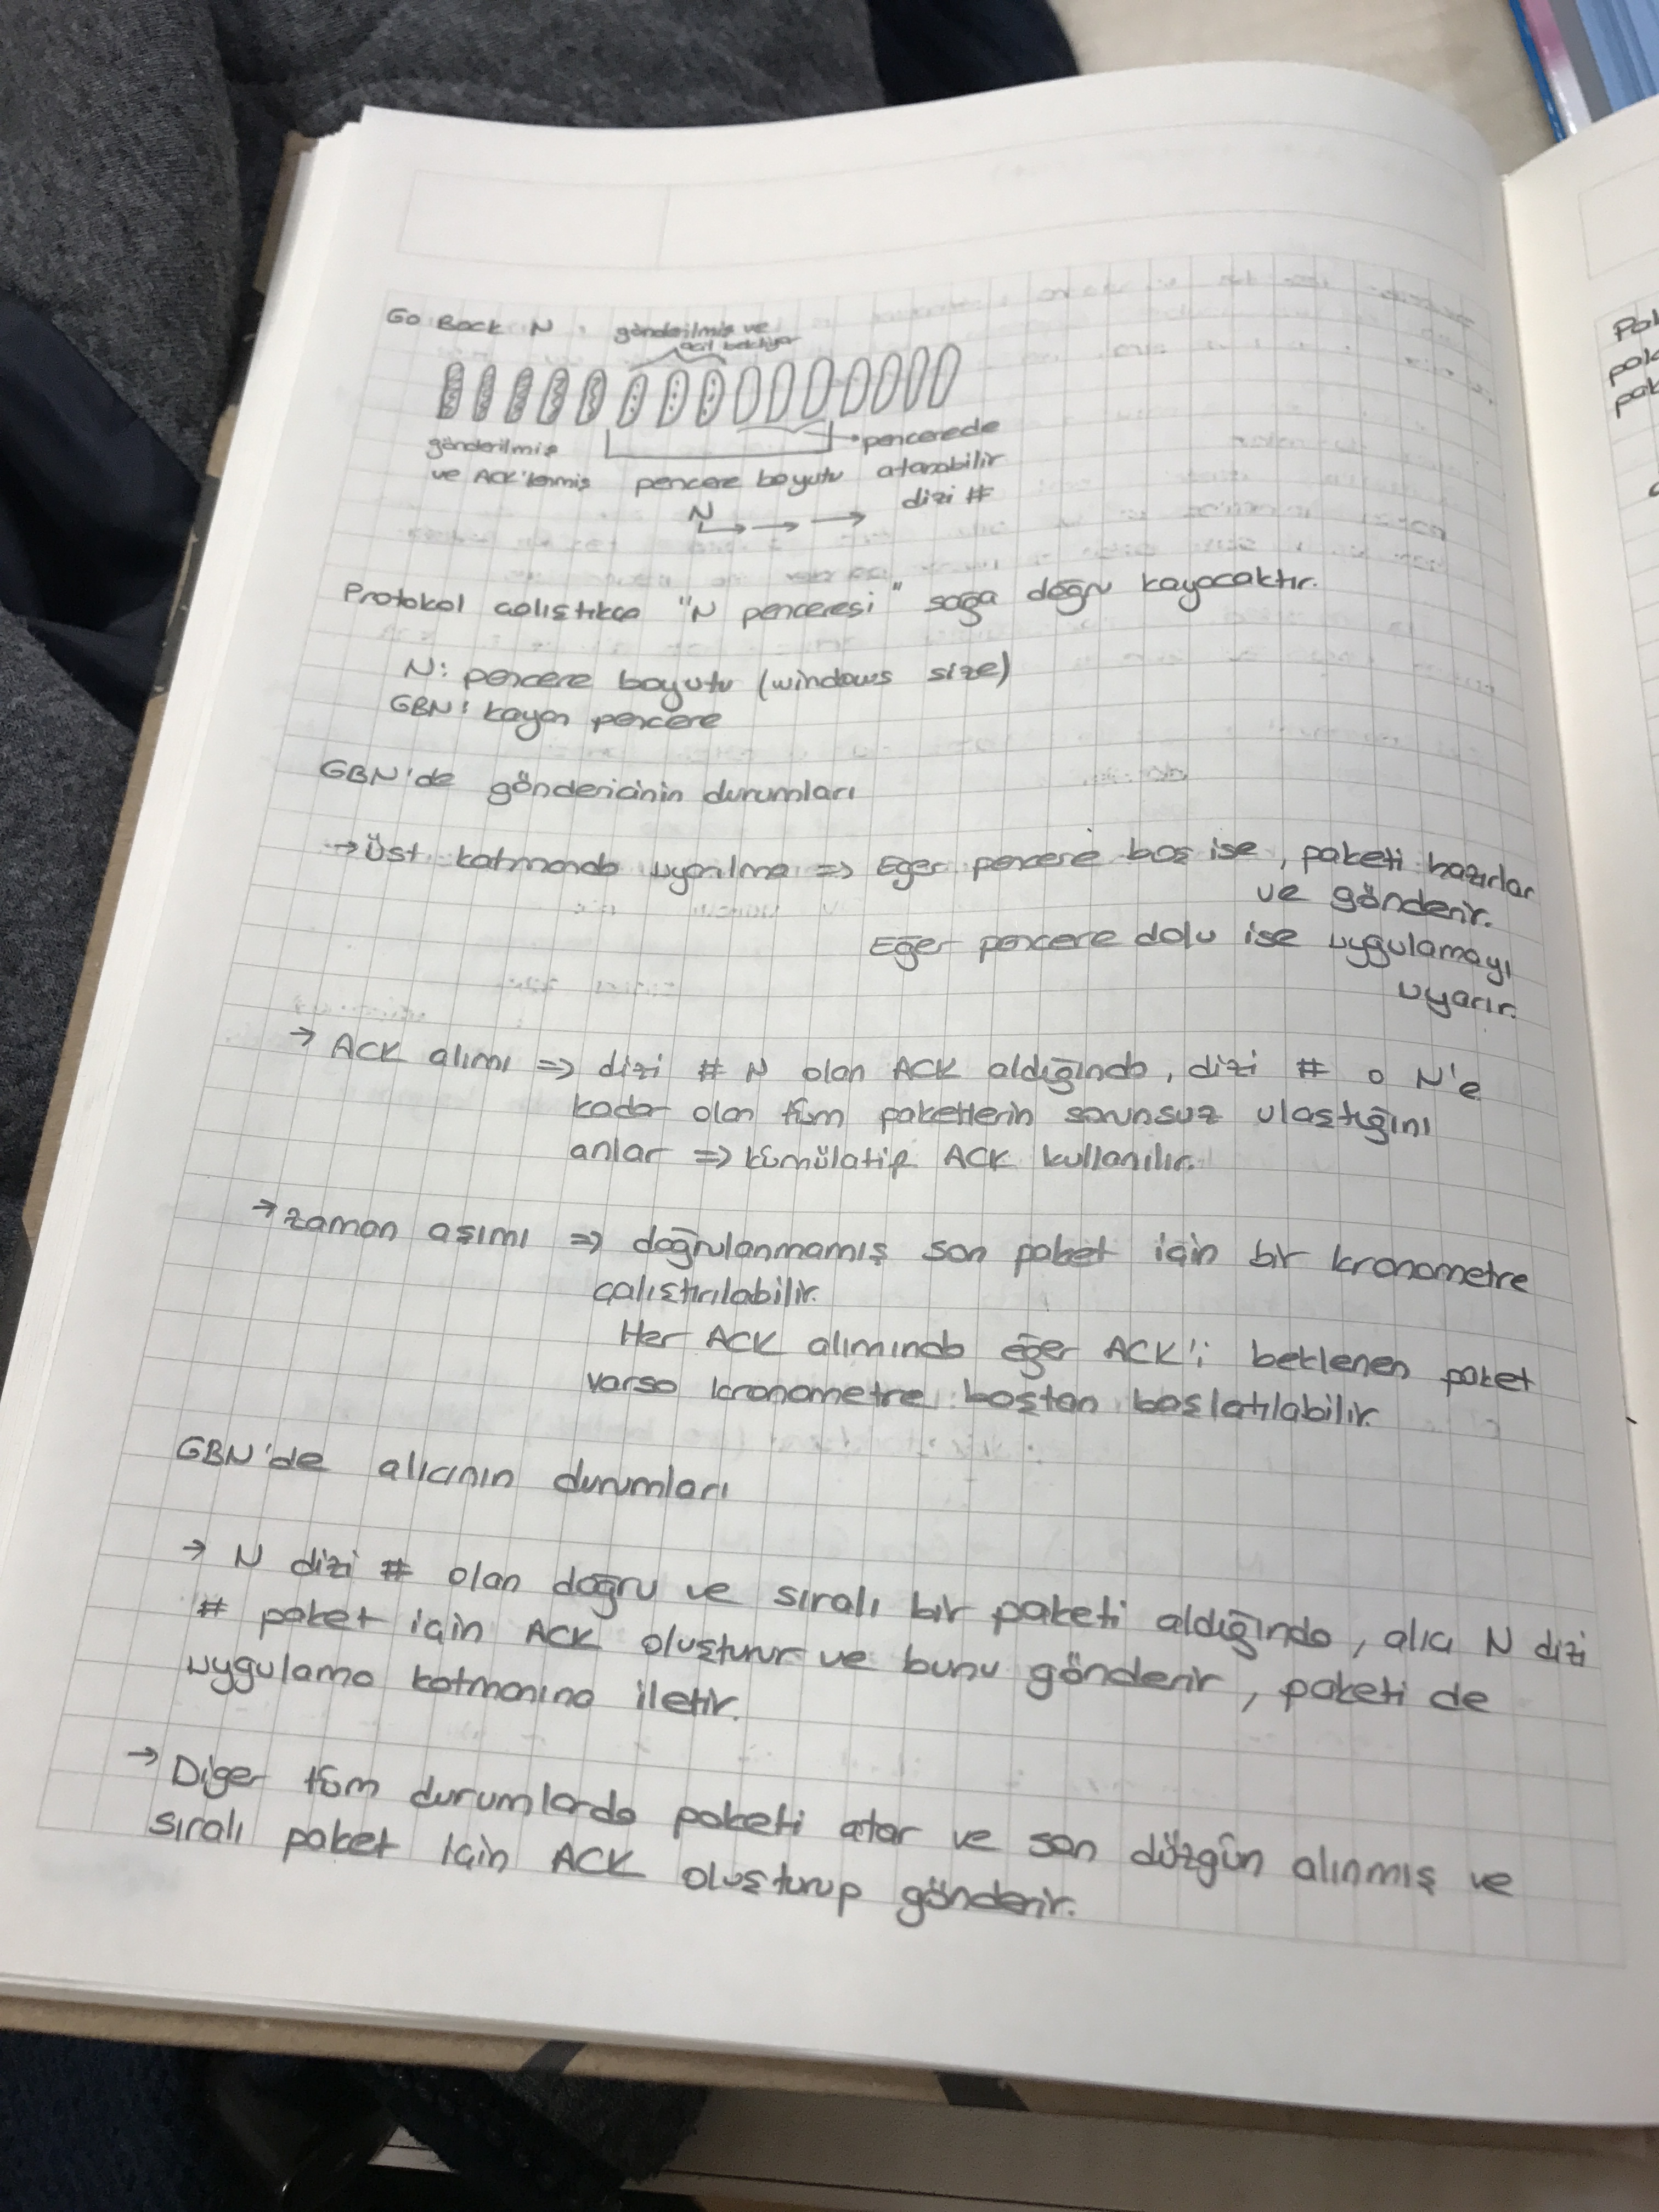 Go Back N
gönderilmiş ve
ack bekliyor
gönderilmiş
ve ACK'lenmiş
pencere boyutu
N
pencerede
atanabilir
dizi #
Protokol çalıştıkça "N penceresi" sağa doğru kayacaktır.
N: pencere boyutu (windows size)
GBN: kayan pencere
GBN'de göndericinin durumları
→ Üst katmanda uyarılma => Eğer pencere boş ise, paketi hazırlar
ve gönderir.
Eğer pencere dolu ise uygulamayı
uyarır.
→ ACK alımı => dizi # N olan ACK aldığında, dizi # o N'e
kadar olan tüm paketlerin sorunsuz ulaştığını
anlar => kümülatif ACK kullanılır.
→ zaman aşımı => doğrulanmamış son paket için bir kronometre
çalıştırılabilir.
Her ACK alımında eğer ACK'i beklenen paket
varsa kronometre baştan başlatılabilir.
GBN'de alıcının durumları
→ N dizi # olan doğru ve sıralı bir paketi aldığında, alıcı N dizi
# paket için ACK oluşturur ve bunu gönderir, paketi de
uygulama katmanına iletir.
→ Diger tüm durumlarda paketi atar ve son düzgün alınmış ve
sıralı paket için ACK oluşturup gönderir.